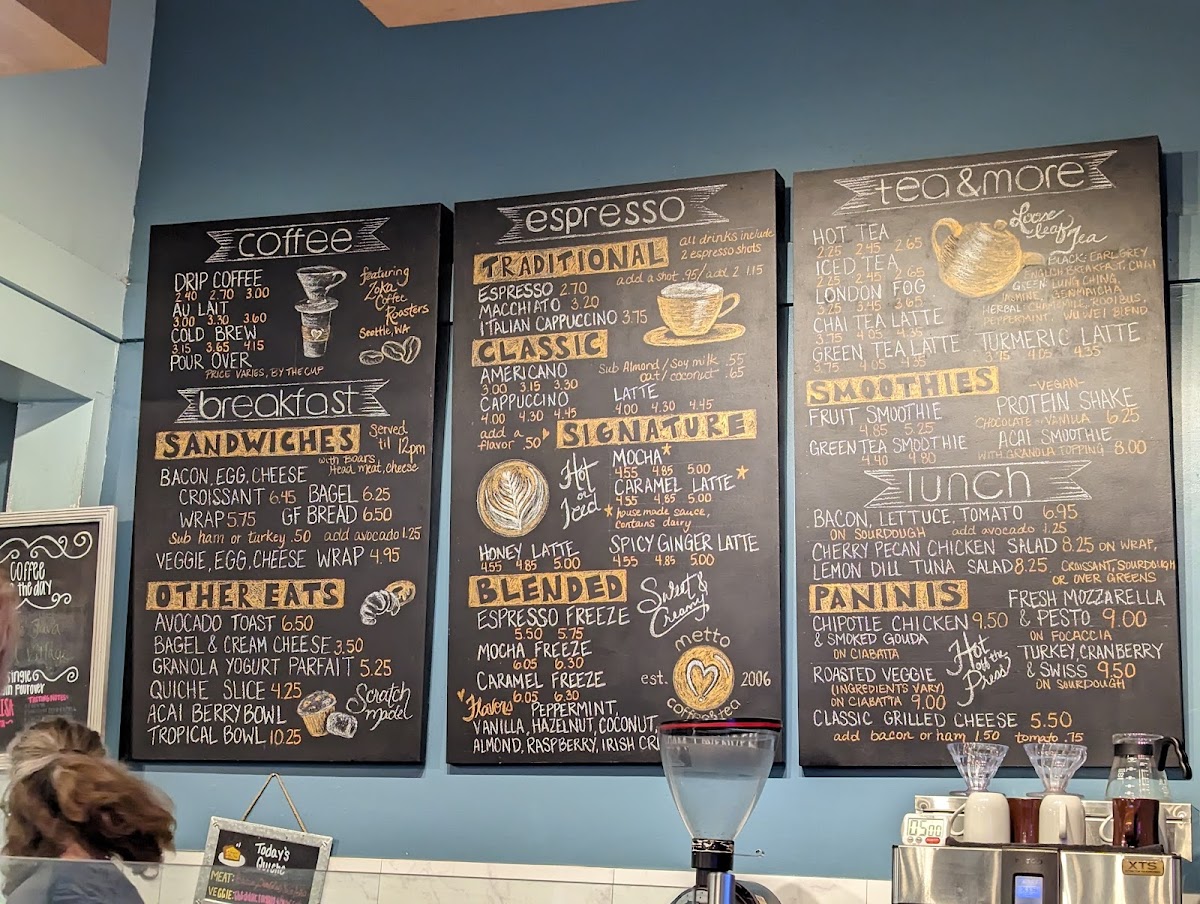 coffee
DRIP COFFEE
2.40 2.70 3.00
AU LAIT
3.00 3.30 3.60
COLD BREW
3.15 3.65 4.15
POUR OVER
PRICE VARIES, BY THE CUP
featuring
Zoka
Coffee
Roasters
Seattle, WA
breakfast
SANDWICHES
Served
til 12pm
with Boars
Head meat, cheese
BACON, EGG, CHEESE
CROISSANT 6.45 BAGEL 6.25
WRAP 5.75 GF BREAD 6.50
Sub ham or turkey .50 add avocado 1.25
VEGGIE, EGG, CHEESE WRAP 4.95
OTHER EATS
AVOCADO TOAST 6.50
BAGEL & CREAM CHEESE 3.50
GRANOLA YOGURT PARFAIT 5.25
QUICHE SLICE 4.25
ACAI BERRY BOWL
TROPICAL BOWL 10.25
Scratch
made!
espresso
TRADITIONAL
all drinks include
2 espresso shots
add a shot .95/add 2 1.15
ESPRESSO 2.70
MACCHIATO 3.20
ITALIAN CAPPUCCINO 3.75
CLASSIC
Sub Almond/Soy milk .55
oat/coconut .65
AMERICANO
3.00 3.15 3.30
CAPPUCCINO
4.00 4.30 4.45
LATTE
4.00 4.30 4.45
add a
flavor .50
SIGNATURE
Hot
or
Iced
MOCHA*
4.55 4.85 5.00
CARAMEL LATTE*
4.55 4.85 5.00
*house made sauce,
contains dairy
HONEY LATTE
4.55 4.85 5.00
SPICY GINGER LATTE
4.55 4.85 5.00
BLENDED
Sweet &
Creamy
ESPRESSO FREEZE
5.50 5.75
MOCHA FREEZE
6.05 6.30
CARAMEL FREEZE
6.05 6.30
metto
est. 2006
coffee & tea
Flavors
PEPPERMINT,
VANILLA, HAZELNUT, COCONUT,
ALMOND, RASPBERRY, IRISH
tea & more
HOT TEA
2.25 2.45 2.65
ICED TEA
2.25 2.45 2.65
LONDON FOG
3.25 3.45 3.65
CHAI TEA LATTE
3.75 4.05 4.35
GREEN TEA LATTE
3.75 4.05 4.35
Loose
leaf
Tea
BLACK: EARL GREY
ENGLISH BREAKFAST, CHAI
GREEN: LUNG CHING,
JASMINE, GENMAICHA
HERBAL: CHAMOMILE, ROOIBUS,
PEPPERMINT, WU WEI BLEND
TURMERIC LATTE
3.75 4.05 4.35
SMOOTHIES
FRUIT SMOOTHIE
4.85 5.25
GREEN TEA SMOOTHIE
4.40 4.80
-VEGAN-
PROTEIN SHAKE
CHOCOLATE or VANILLA 6.25
ACAI SMOOTHIE
WITH GRANOLA TOPPING 8.00
lunch
BACON, LETTUCE, TOMATO 6.95
ON SOURDOUGH add avocado 1.25
CHERRY PECAN CHICKEN SALAD 8.25 ON WRAP,
LEMON DILL TUNA SALAD 8.25 CROISSANT, SOURDOUGH
OR OVER GREENS
PANINIS
CHIPOTLE CHICKEN 9.50
& SMOKED GOUDA
ON CIABATTA
ROASTED VEGGIE
(INGREDIENTS VARY)
ON CIABATTA 9.00
Hot
off the
Press!
FRESH MOZZARELLA
& PESTO 9.00
ON FOCACCIA
TURKEY, CRANBERRY
& SWISS 9.50
ON SOURDOUGH
CLASSIC GRILLED CHEESE 5.50
add bacon or ham 1.50 tomato .75
Coffee
the day
Today's
Quiche
MEAT:
VEGGIE:
05:00
XTS